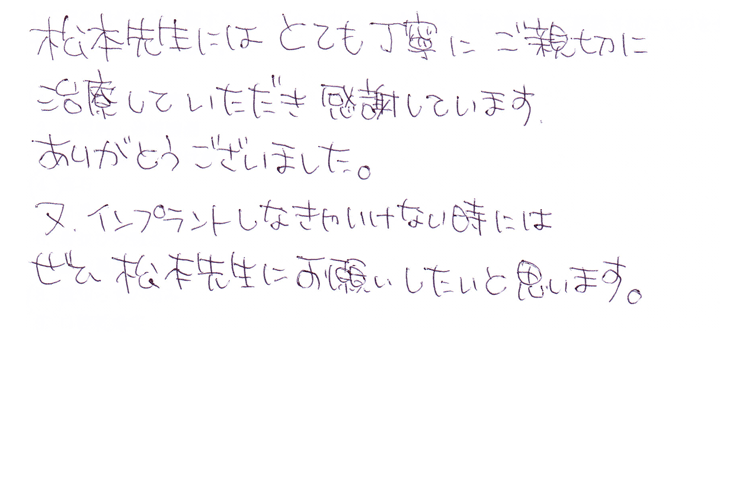 松本先生には とても丁寧に ご親切に
治療していただき 感謝しています.
ありがとうございました。
又.インプラントしなきゃいけない時には
ぜひ 松本先生にお願いしたいと思います。